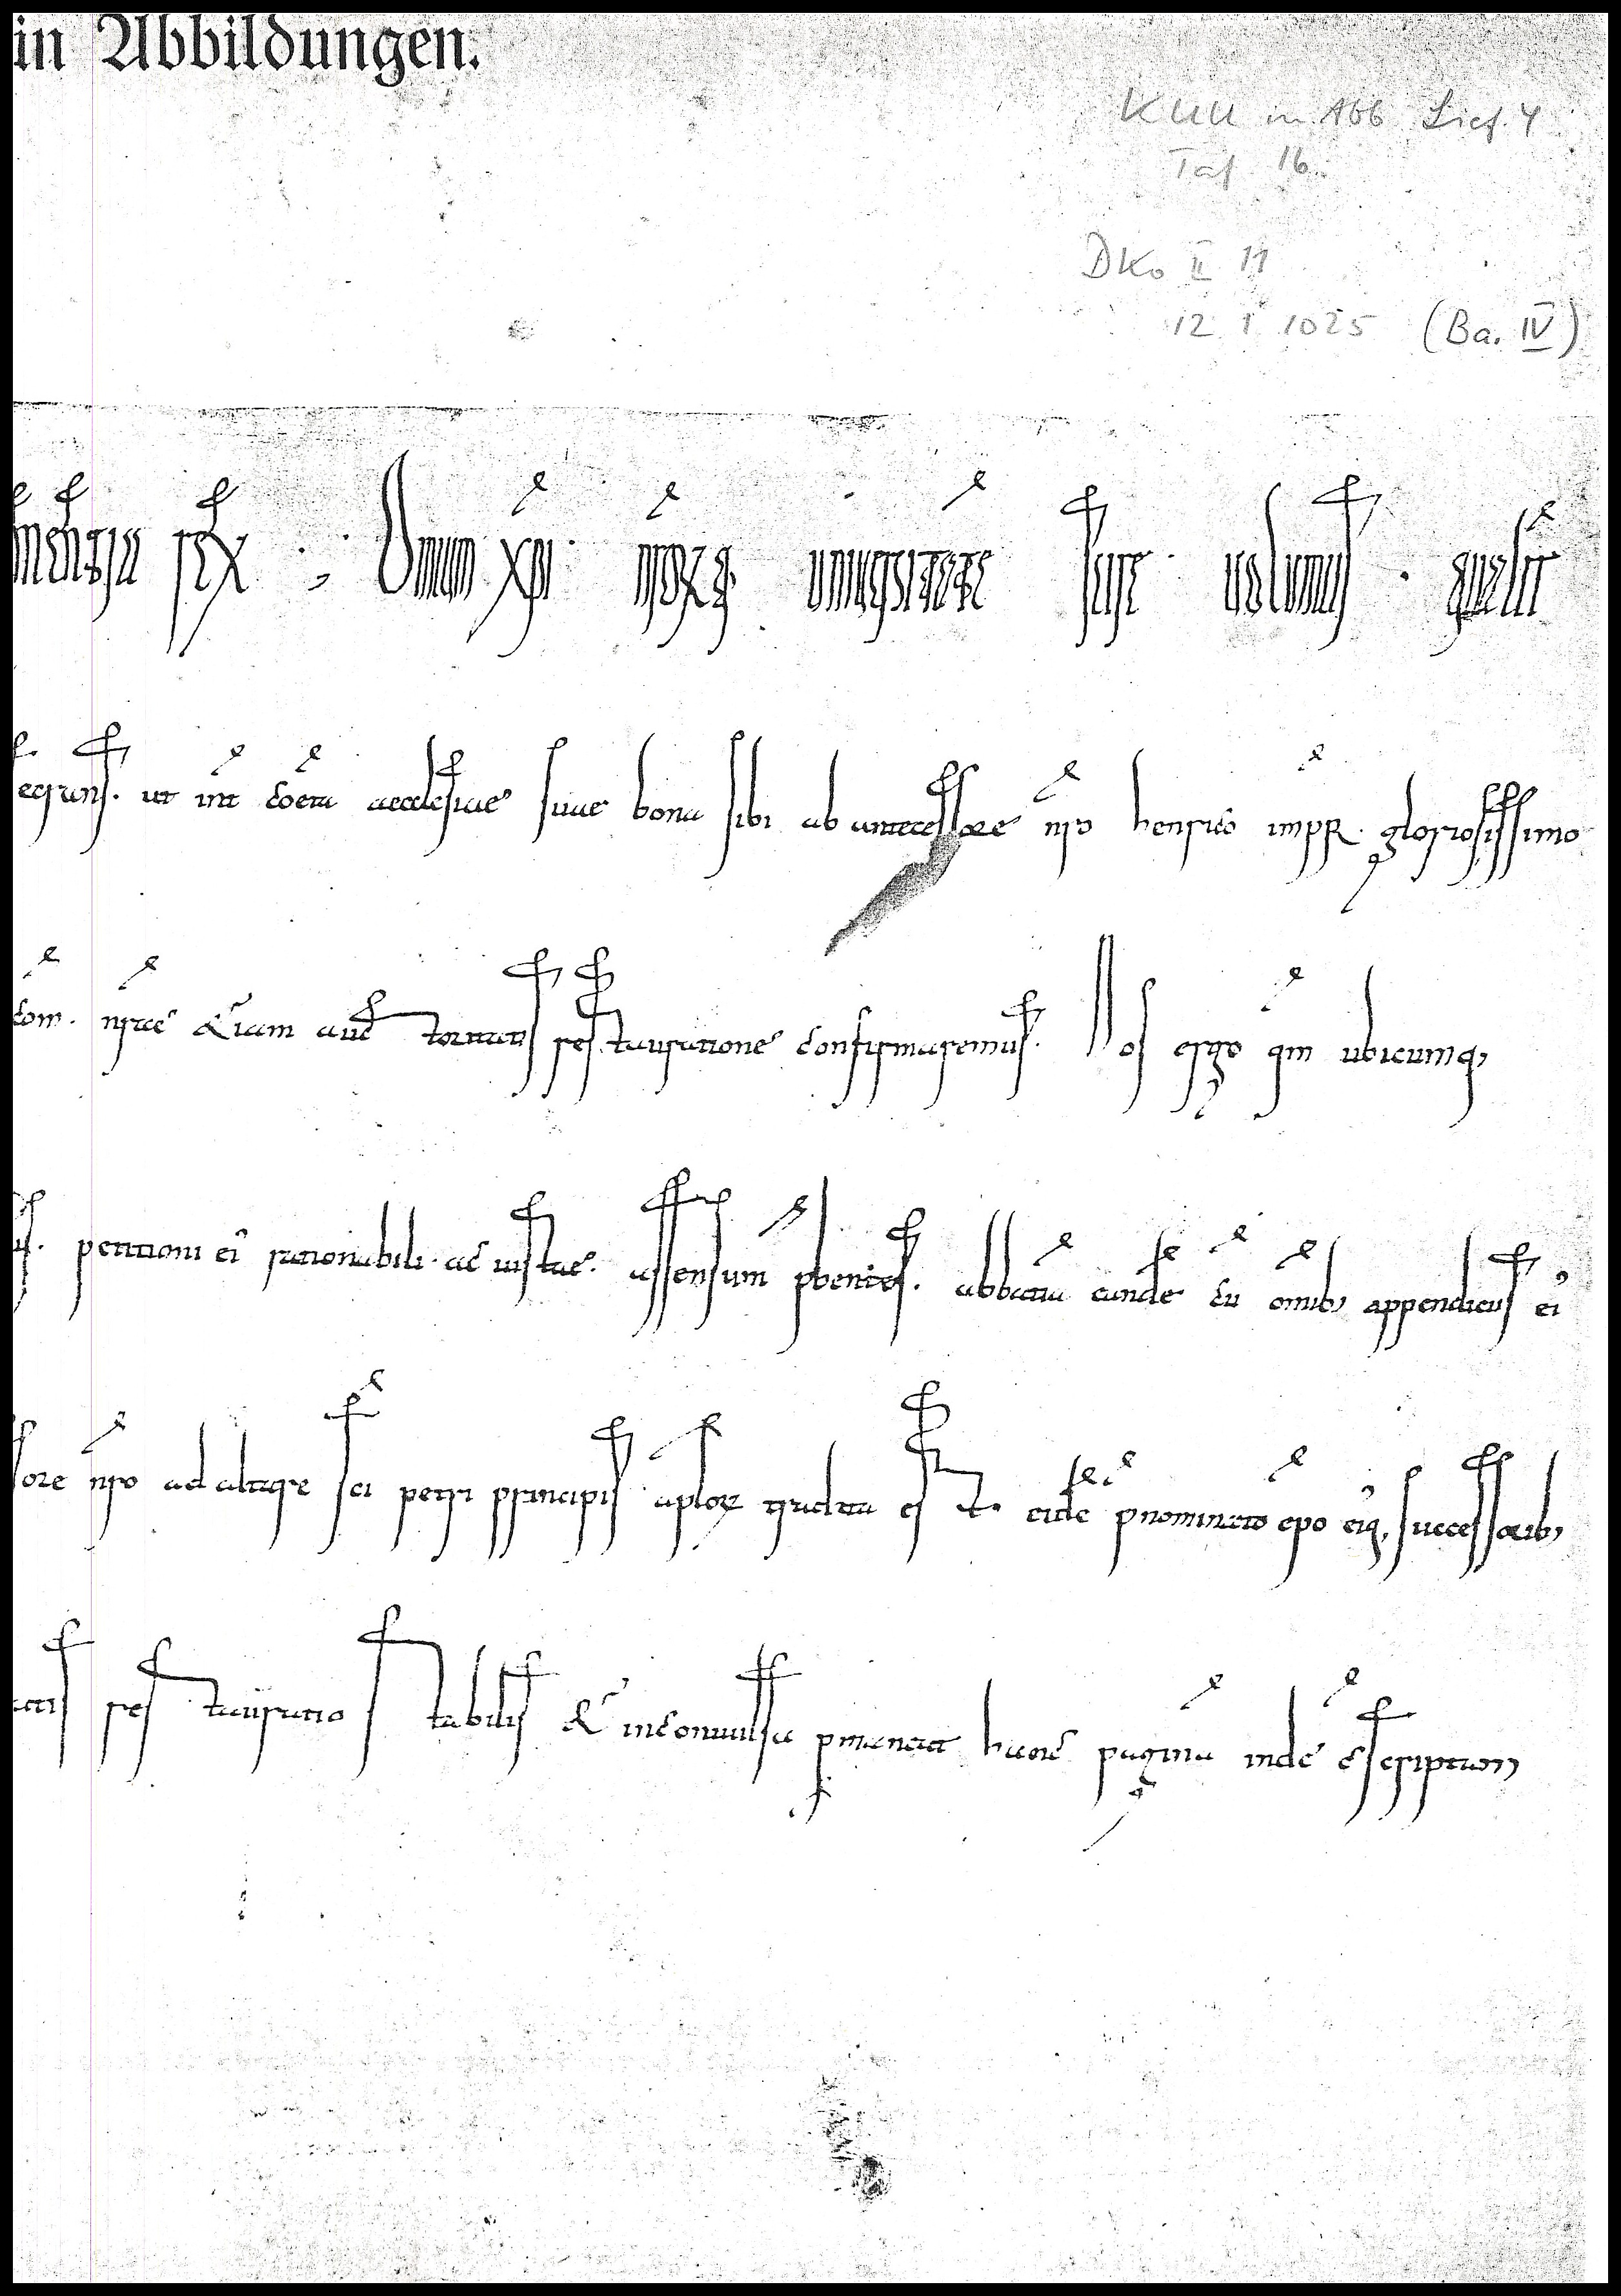 in Abbildungen.
KUU in Abb Lief. 4
Taf 16.
DKo II 11
12 I 1025 (Ba. IV)
clementia rex :· Omniu xpi nrorq; universitate scire volumus · qualit
ut int cetera aecclesiae suae bona sibi ab antecessore nro henrico impr. gloriosissimo
nrae &iam auctoritatis restauratione confirmaremus. Nos ergo qm ubicumq,
petitioni ei rationabili · ac iustae · assensum pbentes · abbatia eande cu omib, appendiciis ei
sore nro ad altare sci petri principis aplor tradita est · eide pnominato epo eiq, successorib,
restauratio stabilis & inconvulsa pmaneat hanc pagina inde cscriptam